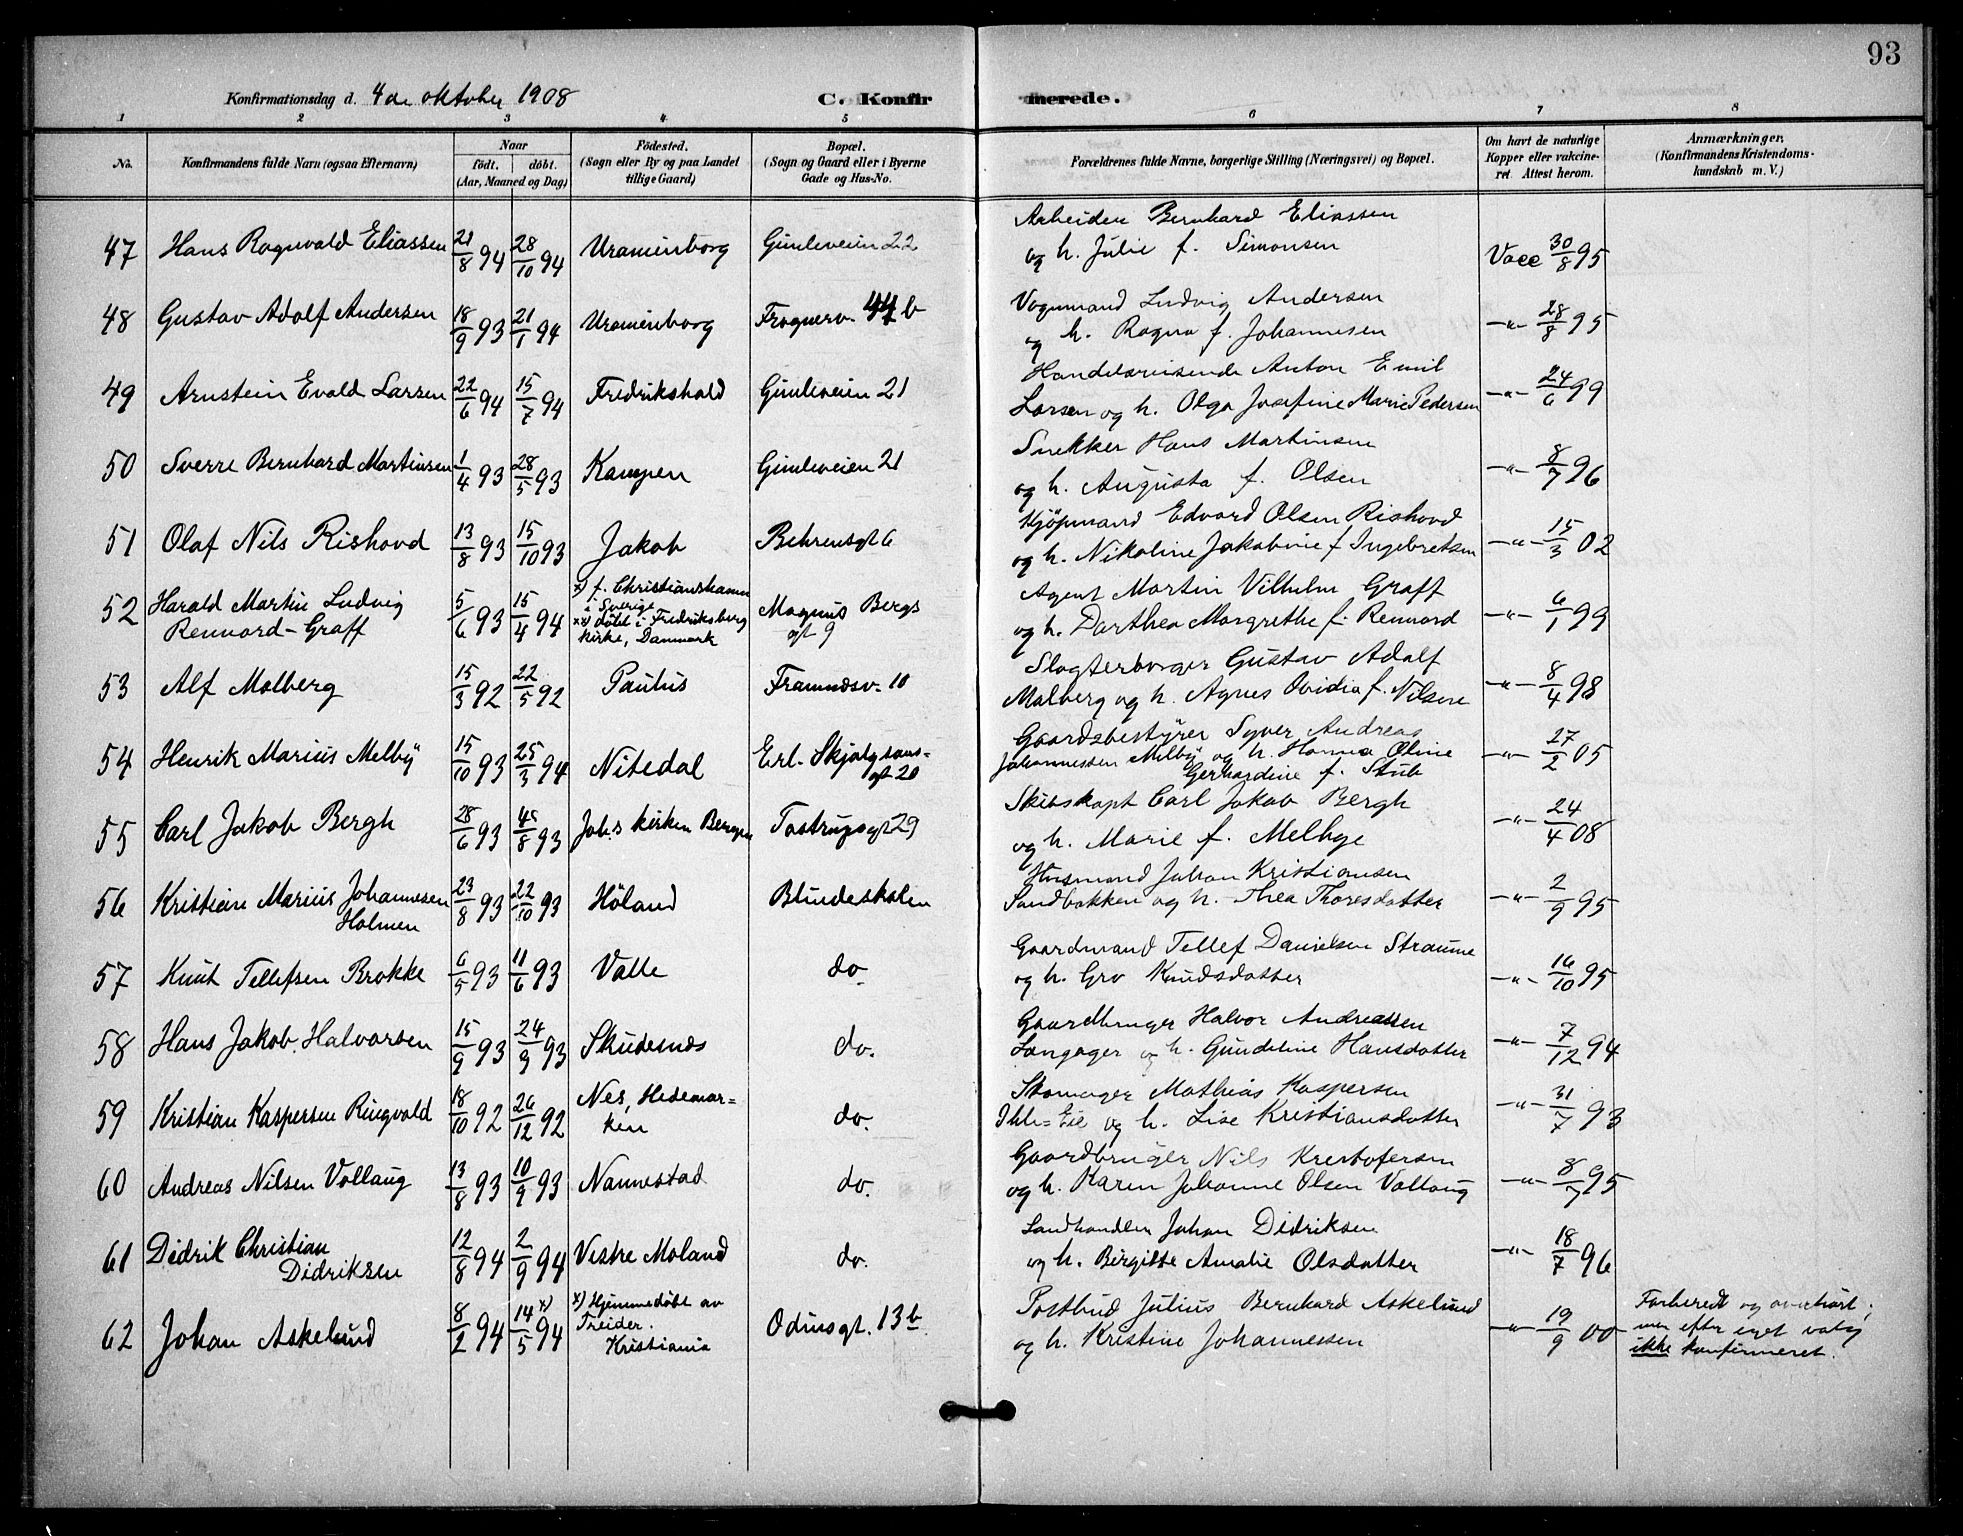 93
Konfirmationsdag d. 4de oktober 1908
C. Konfirmerede.
1 2 3 4 5 6 7 8
No. Konfirmandens fulde Navn (ogsaa Efternavn) Naar født. døbt. (Aar, Maaned og Dag) Födested. (Sogn eller By og paa Landet tillige Gaard) Bopæl. (Sogn og Gaard eller i Byerne Gade og Hus-No. Forældrenes fulde Navne, borgerlige Stilling (Næringsvei) og Bopæl. Om havt de naturlige Kopper eller vakcineret. Attest herom. Anmærkninger. (Konfirmandens Kristendomskundskab m. V.)
47 Hans Ragnvald Eliassen 21/8 94 28/10 94 Uranienborg Gimleveien 22 Arbeider Bernhard Eliassen
og h. Julie f. Simonsen Vacc 30/8 95
48 Gustav Adolf Andersen 18/9 93 21/1 94 Uranienborg Frognerv. 44 b Vognmand Ludvig Andersen
og h. Ragna f. Johannesen -"- 28/8 95
49 Arnstein Evald Larsen 22/6 94 15/7 94 Fredrikshald Gimleveien 21 Handelsreisende Anton Emil
Larsen og h. Olga Josefine Marie Pedersen -"- 24/6 99
50 Sverre Bernhard Martinsen 1/4 93 28/5 93 Kampen Gimleveien 21 Snekker Hans Martinsen
og h. Augusta f. Olsen -"- 8/7 96
51 Olaf Nils Rishovd 13/8 93 15/10 93 Jakob Behrensgt 6 Kjøpmand Edvard Olsen Rishovd
og h. Nikoline Jakobine f. Ingebretsen -"- 15/3 02
52 Harald Martin Ludvig
Rennord-Graff 5/6 93 15/4 94 x) f. Christianshamn
i Sverige
xx) døbt i Fredriksberg
kirke, Danmark Magnus Bergs
gt 9 Agent Martin Vilhelm Graff
og h. Dorthea Margrethe f. Rennord -"- 6/1 99
53 Alf Malberg 15/3 92 22/5 92 Paulus Framnæsv. 10 Slagterborger Gustav Adolf
Malberg og h. Agnes Ovidia f. Nilsen -"- 8/4 98
54 Henrik Marius Melby 15/10 93 25/3 94 Nitedal Erl. Skjalgsøns-
gt 20 Gaardsbestyrer Syver Andreas
Johannessen Melby og h. Hanna Oline
Gerhardine f. Stub -"- 27/2 05
55 Carl Jakob Bergh 28/6 93 /8 93 Joh.s kirken Bergen Tostrupsgt 29 Skibskapt Carl Jakob Bergh
og h. Marie f. Melhye -"- 24/4 08
56 Kristian Marius Johannesen
Holmen 23/8 93 22/10 93 Höland Blindeskolen Husmand Johan Kristiansen
Sandbakken og h. Thea Thoresdatter -"- 2/9 95
57 Knut Tellefsen Brokke 6/5 93 11/6 93 Valle do Gaardmand Tellef Danielsen Straume
og h. Gro Knudsdatter -"- 16/10 95
58 Hans Jakob Halvorsen 15/9 93 24/9 93 Skudesnæs do. Gaardbruger Halvor Andreassen
Langager og h. Gundeline Hansdatter -"- 7/12 94
59 Kristian Kaspersen Ringvold 18/10 92 26/12 92 Nes, Hedemar=
ken do. Skomager Mathias Kaspersen
Ihle=Eie og h. Lise Kristiansdatter -"- 31/7 93
60 Andreas Nilsen Vollaug 13/8 93 10/9 93 Nannestad do. Gaardbruger Nils Kristofersen
og h. Karen Johanne Olsen Vollaug -"- 8/7 95
61 Didrik Christian
Didriksen 12/8 94 2/9 94 Vestre Moland do. Landhandler Johan Didriksen
og h. Birgitte Amalie Olsdatter -"- 18/7 96
62 Johan Askelund 8/2 94 14/5 94 x) x) Hjemmedøbt av
Treider.
Kristiania Odinsgt. 13 b Postbud Julius Bernhard Askelund
og h. Kristine Johannessen -"- 19/9 00 Forberedt og overhørt,
men efter eget valg
ikke konfirmeret.